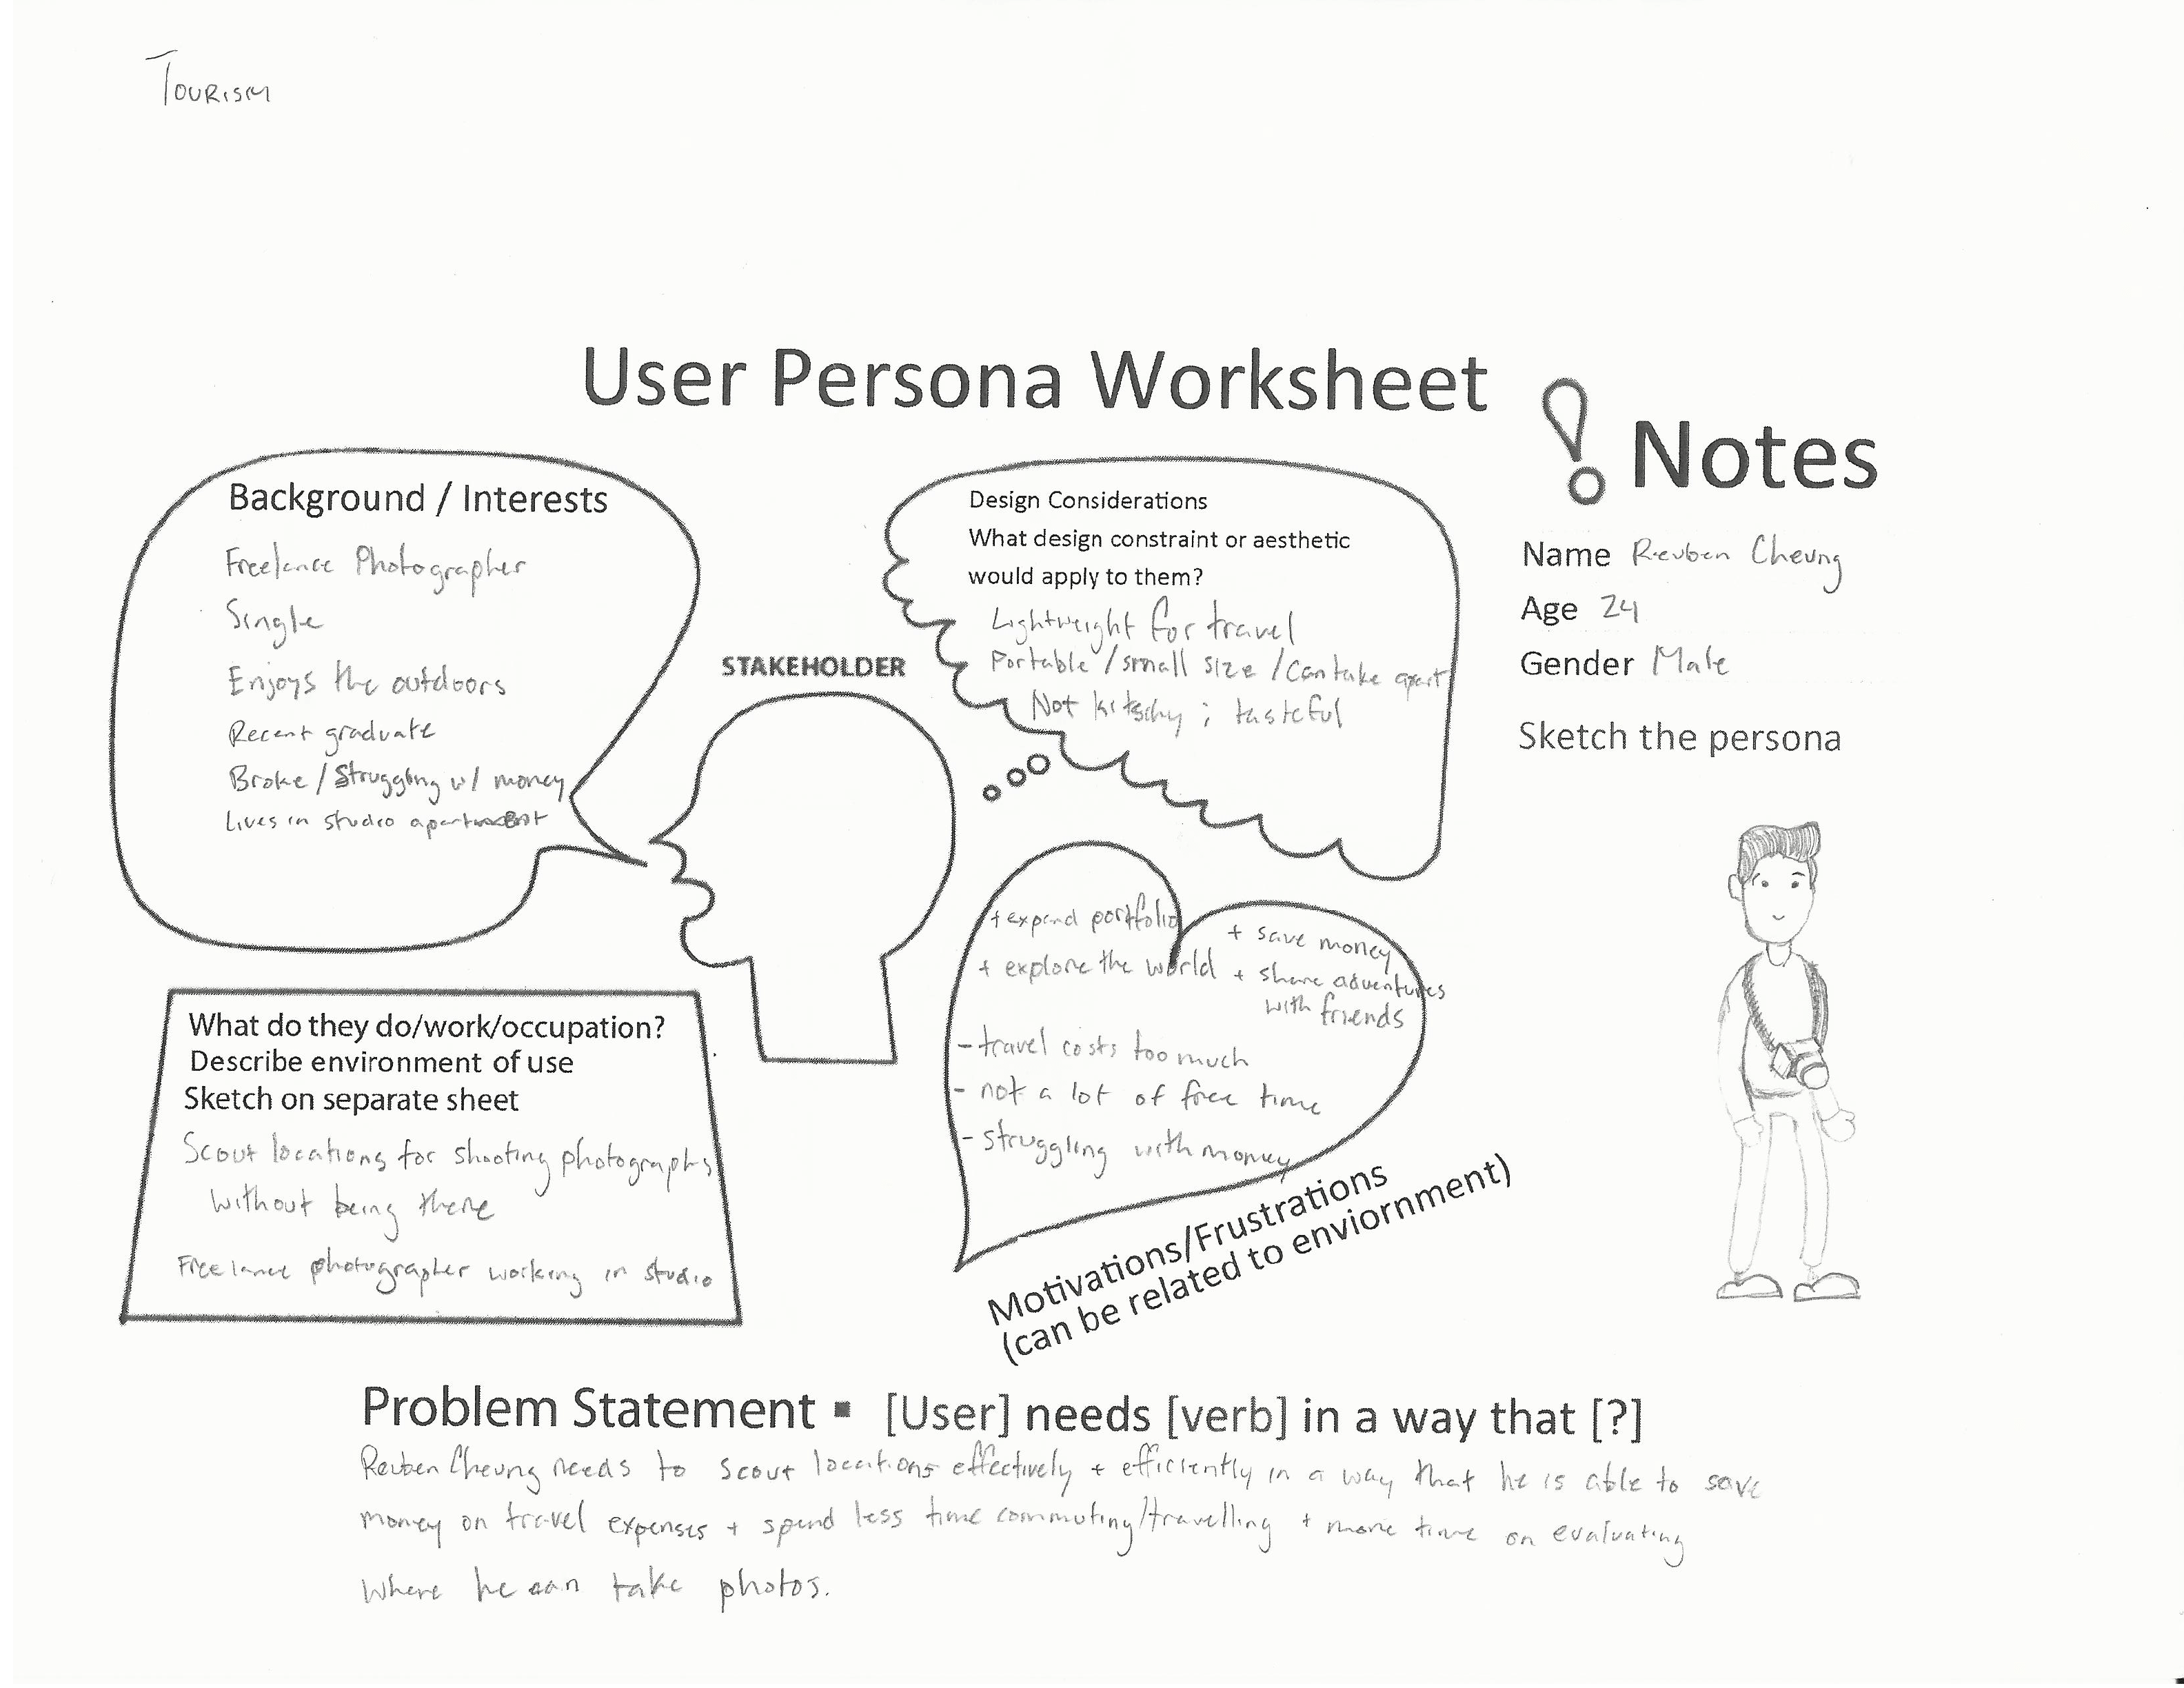 TOURISM
User Persona Worksheet
Background / Interests
Freelance Photographer
Single
Enjoys the outdoors
Recent graduate
Broke / Struggling w/ money
Lives in studio apartment
STAKEHOLDER
Design Considerations
What design constraint or aesthetic
would apply to them?
Lightweight for travel
Portable / small size / can take apart
Not kitschy ; tasteful
! Notes
Name Reuben Cheung
Age 24
Gender Male
Sketch the persona
What do they do/work/occupation?
Describe environment of use
Sketch on separate sheet
Scout locations for shooting photographs
without being there
Freelance photographer working in studio
+ expand portfolio
+ explore the world
+ save money
+ share adventures
with friends
- travel costs too much
- not a lot of free time
- struggling with money
Motivations/Frustrations
(can be related to enviornment)
Problem Statement ▪ [User] needs [verb] in a way that [?]
Reuben Cheung needs to scout locations effectively + efficiently in a way that he is able to save
money on travel expenses + spend less time commuting/travelling + more time on evaluating
where he can take photos.